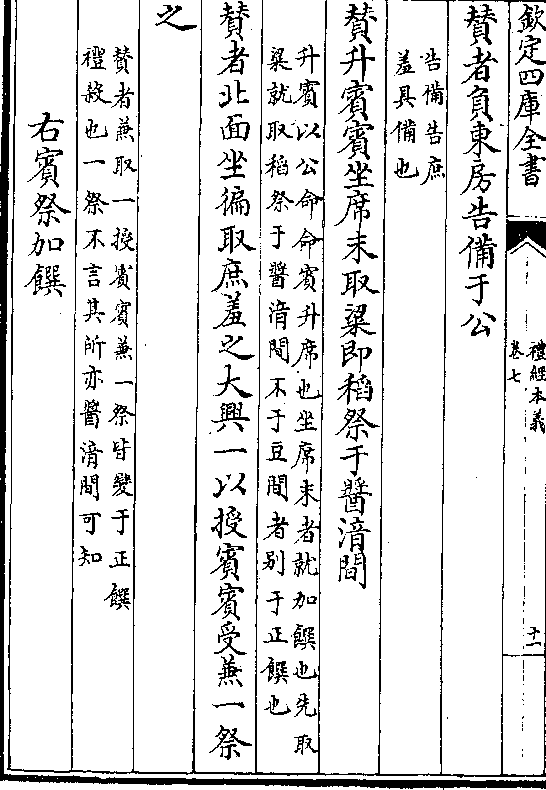 欽定四庫全書
禮經本義
卷七
十一
贊者負東房告備于公
告備告庶
羞具備也
贊升賓賓坐席末取粱即稻祭于醬湆間
升賓以公命命賓升席也坐席末者就加饌也先取
粱就取稻祭于醬湆間不于豆間者别于正饌也
贊者北面坐徧取庶羞之大興一以授賓賓受兼一祭
之
贊者兼取一授賓賓兼一祭皆變于正饌
禮殺也一祭不言其所亦醬湆間可知
右賓祭加饌